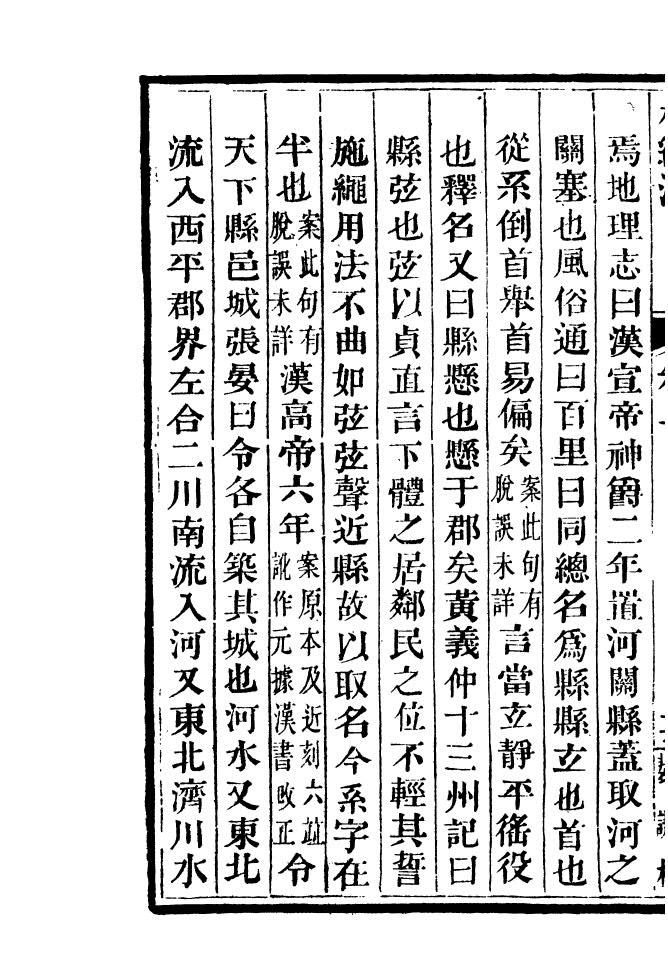 焉地理志曰漢宣帝神爵二年置河關縣蓋取河之
關塞也風俗通曰百里曰同總名爲縣縣玄也首也
從系倒首舉首易偏矣案此句有脫誤未詳言當玄靜平徭役
也釋名又曰縣懸也懸于郡矣黃義仲十三州記曰
縣弦也弦以貞直言下體之居鄰民之位不輕其誓
施繩用法不曲如弦弦聲近縣故以取名今系字在
半也案此句有脫誤未詳漢高帝六年案原本及近刻六竝訛作元據漢書改正令
天下縣邑城張晏曰令各自築其城也河水又東北
流入西平郡界左合二川南流入河又東北濟川水